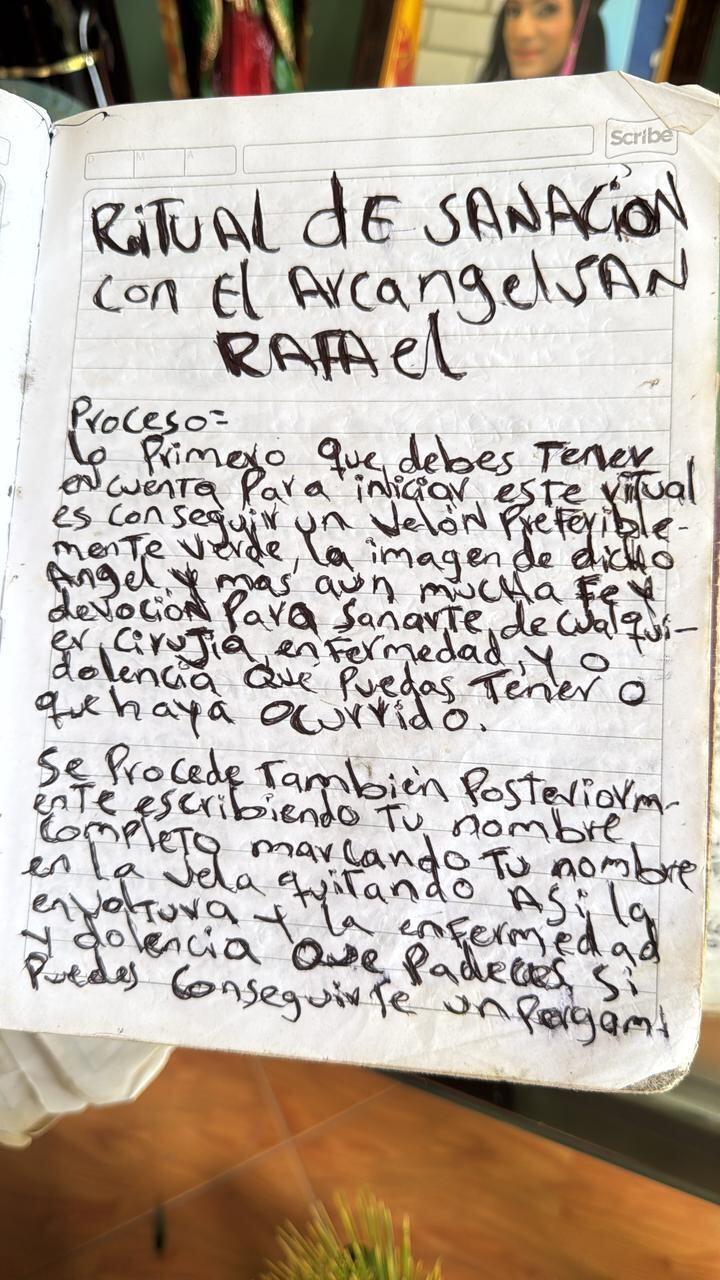 Scribe
D M A
RiTUAL dE SANACiON
con El ArcangelSAN
RAFAel
Proceso=
Lo Primero que debes Tener
en cuenta Para iniciar este ritual
es conseguir un velón Preferible-
mente verde, la imagen de dicho
Angel y mas aun mucha Fe y
devoción Para sanarte de cualqui-
er cirujia, enfermedad, y o
dolencia que Puedas Tener o
que haya ocurrido.
Se Procede También Posteriorm-
ente escribiendo Tu nombre
completo marcando Tu nombre
en la vela quitando Asi la
envoltura + la enfermedad
y dolencia que Padeces, Si
Puedes Conseguirte un Pergami